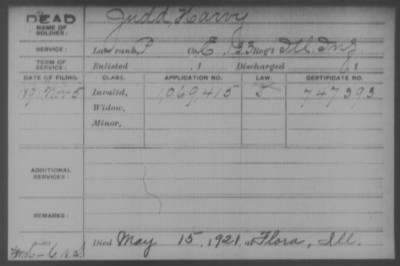 DEAD
NAME OF SOLDIER: Judd, Harvy
SERVICE: Late rank, P Co. E, 93 Reg't Ill. Inf
TERM OF SERVICE: Enlisted , 1 Discharged , 1
DATE OF FILING. CLASS. APPLICATION NO. LAW. CERTIFICATE NO.
1891 Nov 5 Invalid, 1,069,415 747393
Widow,
Minor,
ADDITIONAL SERVICES:
REMARKS:
Died May 15, 1921, at Flora, Ill.